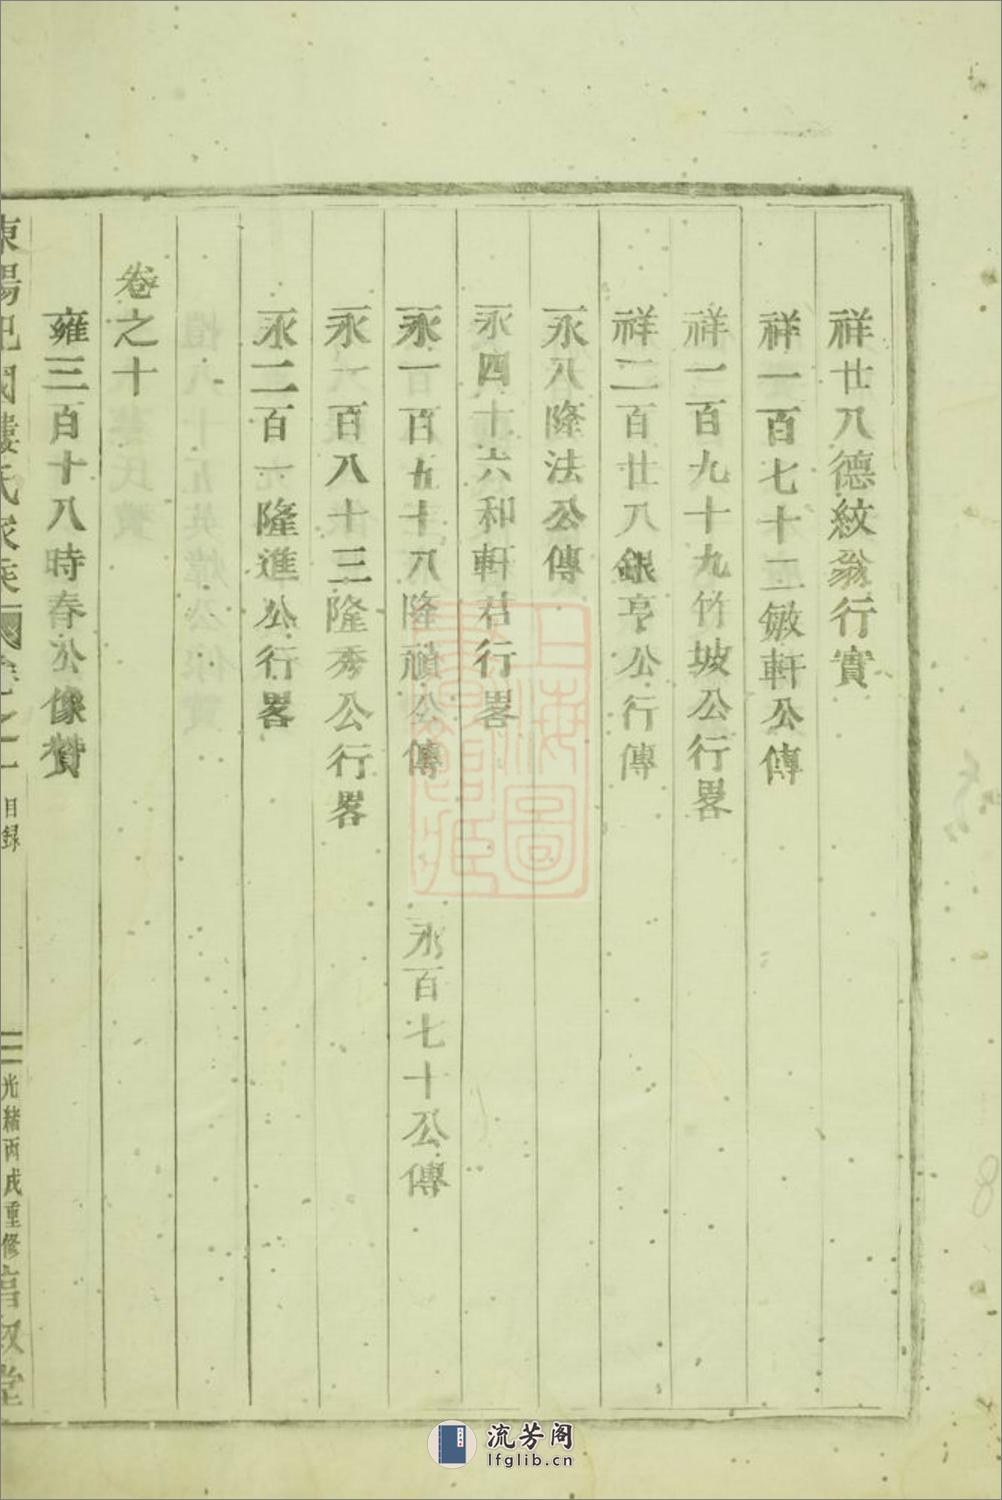 祥廿八德紋翁行實
祥一百七十二敏軒公傳
祥一百九十九竹坡公行畧
祥二百廿八銀亨公行傳
永八隆法公傳
永四十六和軒君行畧
永一百五十八隆頑公傳 永百七十公傳
永一百八十三隆秀公行畧
永二百九隆進公行畧
卷之十
雍三百十八時春公像贊
東陽紀國樓氏家乘 卷之二 目録 光緒丙戌重修
上海圖書館藏
流芳阁
lfglib.cn